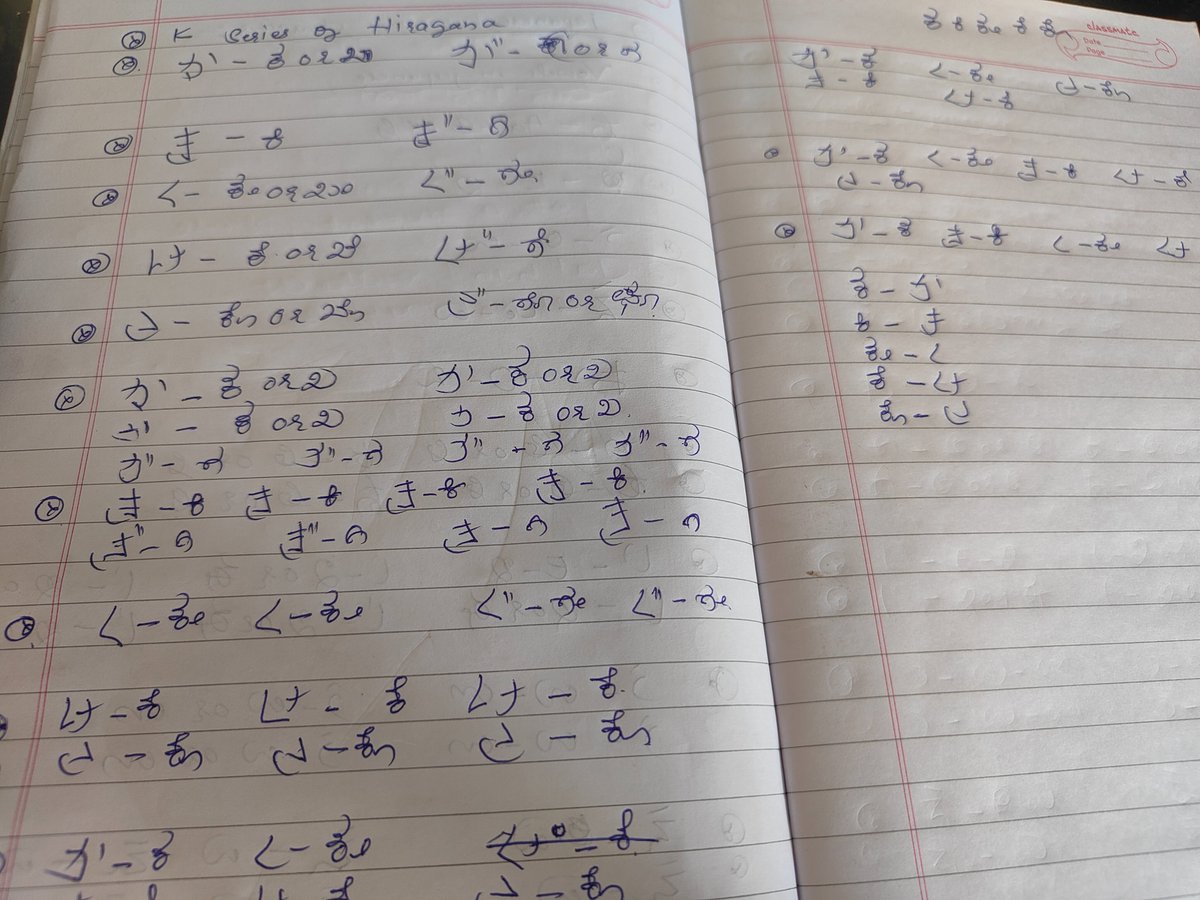 K Series of Hiragana
か - ಕ or ಖ が - or ಗ
き - ಕಿ ぎ - ಗಿ
く - ಕು or ಖು ぐ - ಗು
け - ಕೆ or ಖೆ げ - ಗೆ
こ - ಕೊ or ಖೊ ご - ಗೊ or ಘೊ
か - ಕ or ಖ か - ಕ or ಖ
か - ಕ or ಖ か - ಕ or ಖ
が - ಗ が - ಗ が - ಗ が - ಗ
き - ಕಿ き - ಕಿ き - ಕಿ き - ಕಿ
ぎ - ಗಿ ぎ - ಗಿ き - ಗಿ ぎ - ಗಿ
く - ಕು く - ಕು ぐ - ಗು ぐ - ಗು
け - ಕೆ け - ಕೆ け - ಕೆ
こ - ಕೊ こ - ಕೊ こ - ಕೊ
か - ಕ く - ಕು
ಕ ಕಿ ಕು ಕೆ ಕೊ
classmate
Date
Page
か - ಕ く - ಕು こ - ಕೊ
き - ಕಿ け - ಕೆ
か - ಕ く - ಕು き - ಕಿ け - ಕೆ
こ - ಕೊ
か - ಕ き - ಕಿ く - ಕು け
ಕ - か
ಕಿ - き
ಕು - く
ಕೆ - け
ಕೊ - こ